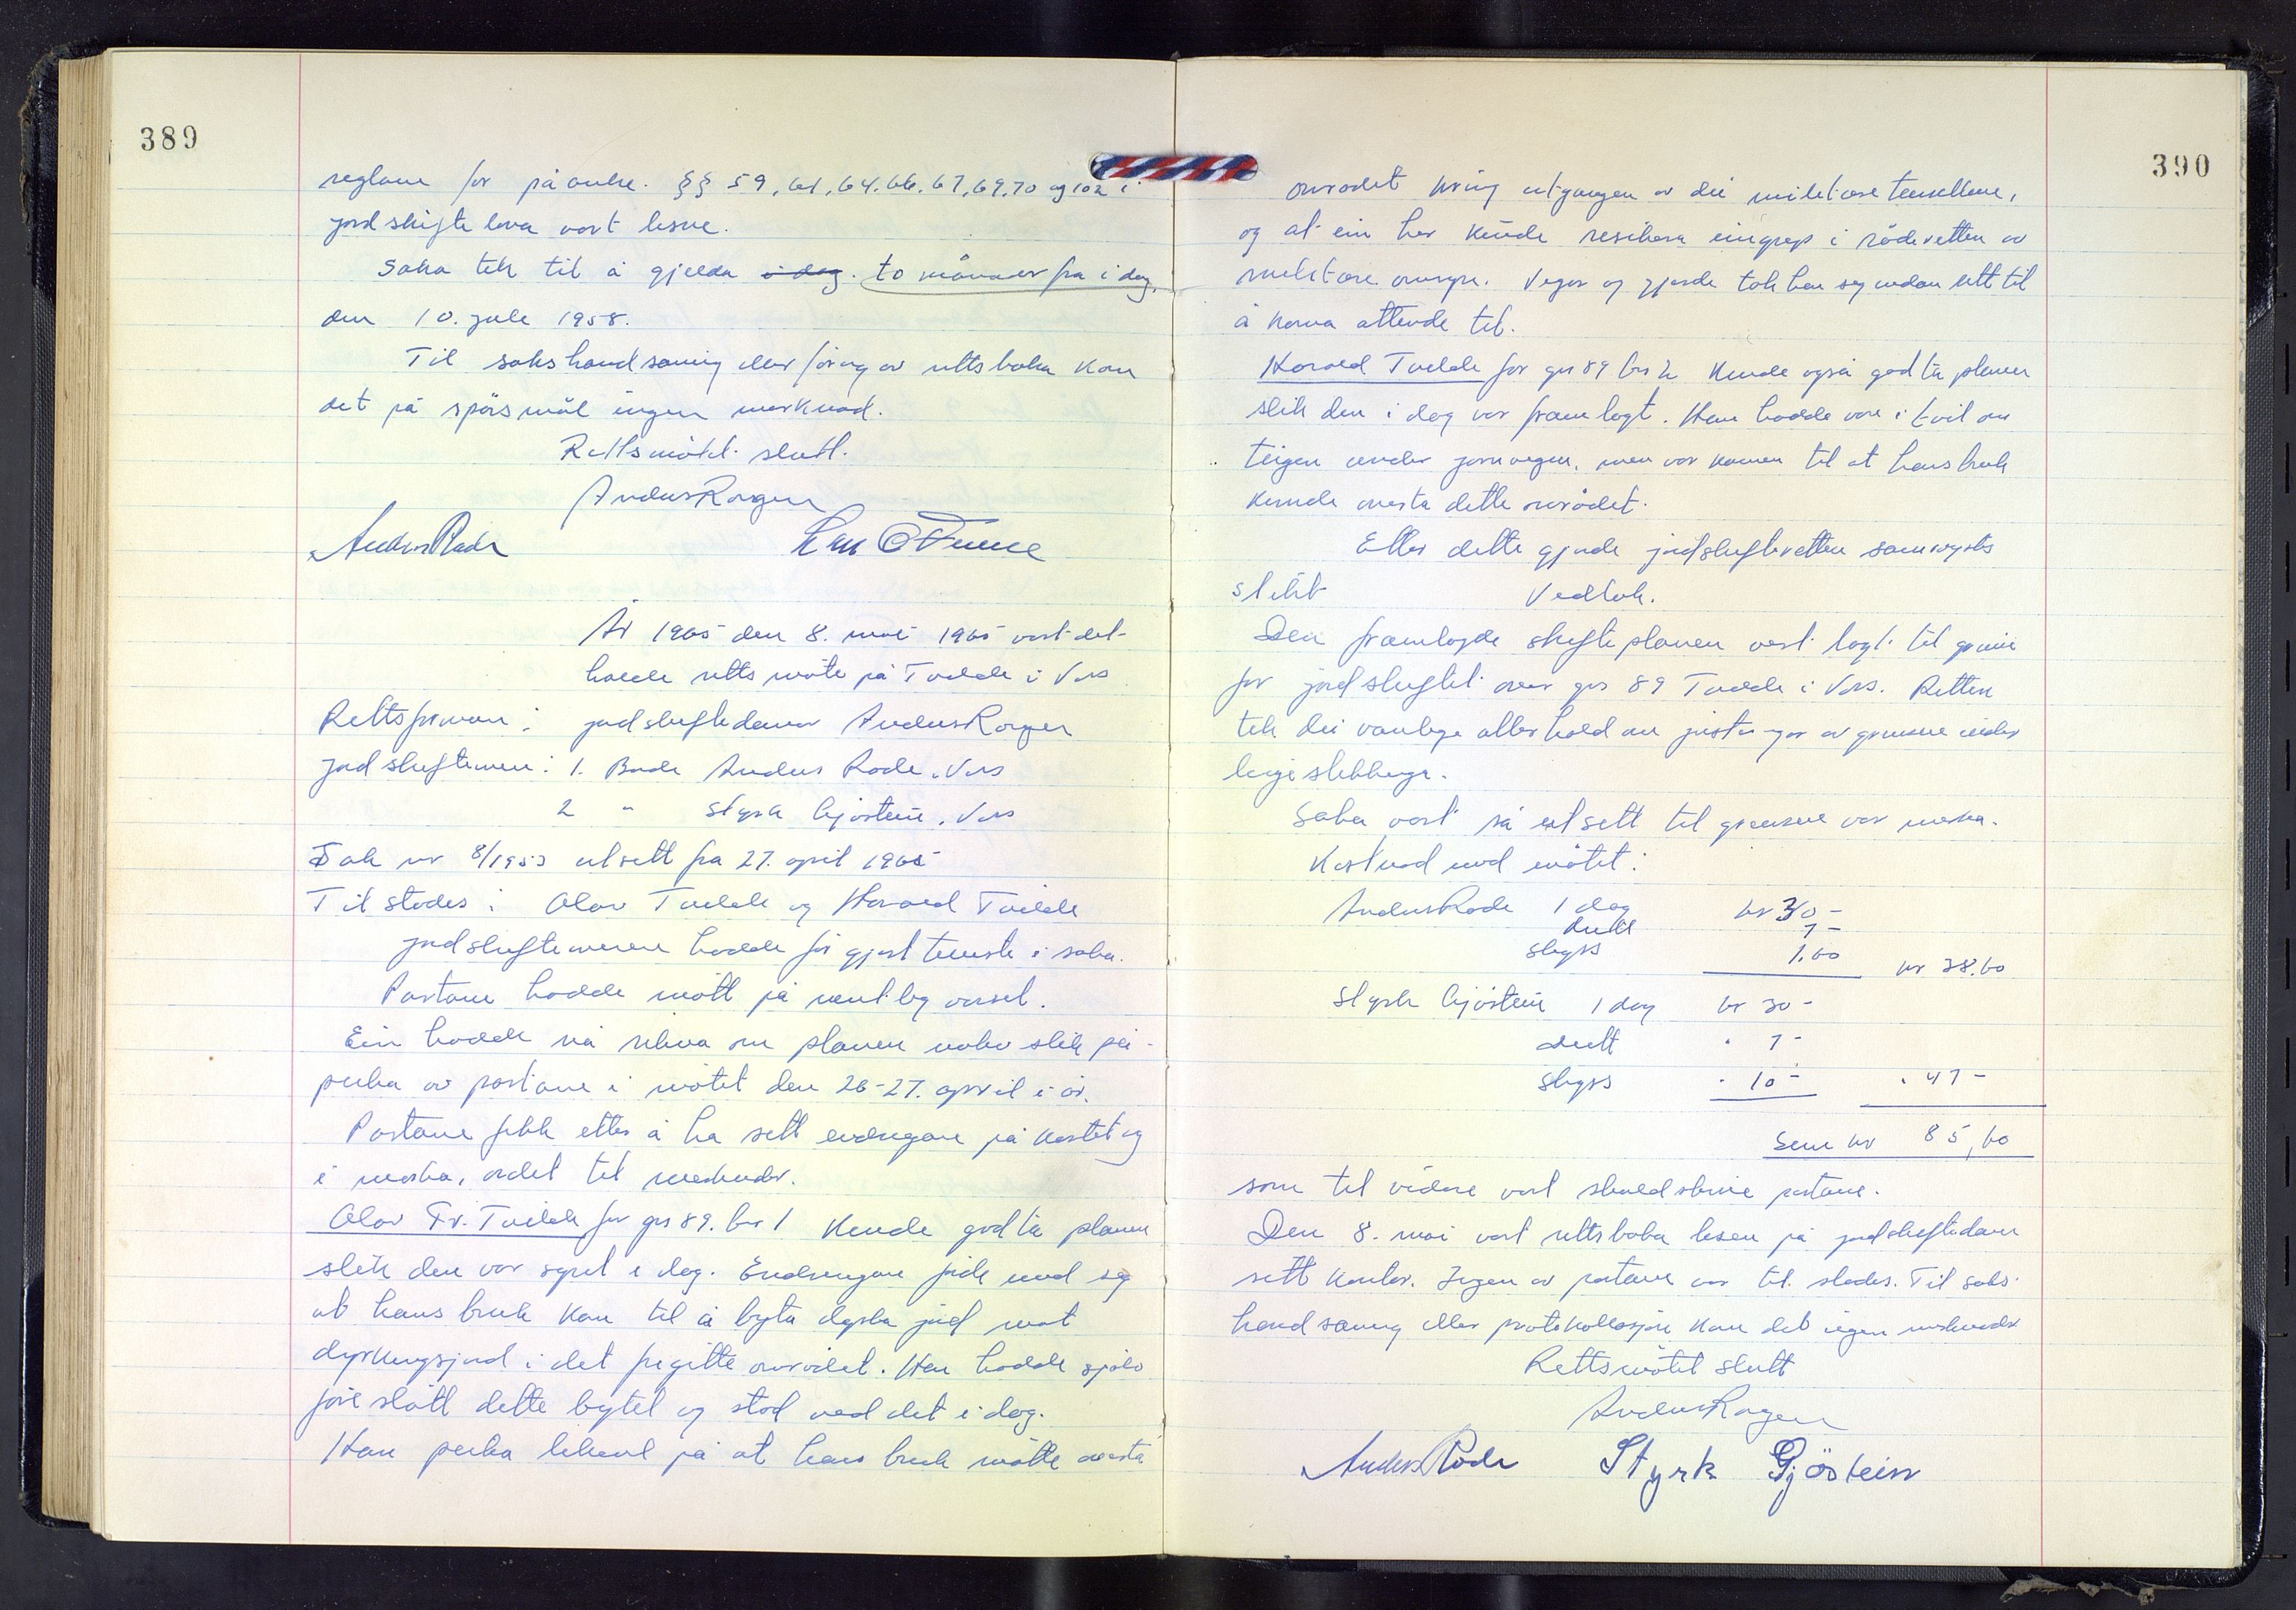 389
reglane for påanke. §§ 59, 61, 64, 66, 67, 69, 70 og 102 i
jordskiftelova vart lesne.
Saka tek til å gjelda i dag. to månader fra i dag,
den 10. juli 1958.
Til sakshandsaming eller føring av rettsboka kom
det på spørsmål ingen merknad.
Rettsmøtet slutt.
Anders Rongen
Anders Rode
År 1965 den 8. mai 1965 vart det
halde rettsmøte på Tvilde i Voss
Rettsformann: jordskiftedomar Anders Rongen
Jordskiftemenn: 1. Bonde Anders Rode, Voss
2 " Styrk Gjøstein, Voss
Sak nr 8/1953 utsett fra 27. april 1965
Til stades: Olav Tvilde og Harald Tvilde
Jordskiftemennene hadde før gjort teneste i saka.
Partane hadde møtt på munnleg varsel.
Ein hadde nå rekna om planen noko slik på-
peika av partane i møtet den 26-27. april i år.
Partane fekk etter å ha sett endringane på kartet og
i marka, ordet til merknader.
Olav Fr. Tvilde for gnr 89. bnr 1 kunde godta planen
slik den var synt i dag. Endringane førde med seg
at hans bruk kom til å byta dyrka jord mot
dyrkingsjord i det frigitte området. Han hadde sjølv
føreslått dette bytet og stod ved det i dag.
Han peika likevel på at hans bruk måtte avstå
390
området kring utgangen av dei militære tunellane,
og at ein her kunde risikera inngrep i råderetten av
militære omsyn. Vegar og gjerde tok han seg vidare rett til
å koma attende til.
Harald Tvilde for gnr 89 bnr 2 kunde også godta planen
slik den i dag var framlagt. Han hadde vore i tvil om
teigen under jarnvegen, men var komen til at hans bruk
kunde avstå dette området.
Etter dette gjorde jordskifteretten samrøystes
slikt Vedtak.
Den framlagde skifteplanen vert lagt til grunn
for jordskiftet over gnr 89 Tvilde i Voss. Retten
tek dei vanlege atterhald om justeringar av grensene under
Saka vart så utsett til grensene var merka.
Kostnad med møtet:
Anders Rode 1 dag kr 30 -
diett 7 -
skyss 1.60 kr 38.60
Styrk Gjøstein 1 dag kr 30 -
diett " 7 -
skyss " 10 - " 47 -
Sum kr 85,60
som til vidare vart skuldskrive partane.
Den 8. mai vart rettsboka lesen på jordskiftedomar
sitt kontor. Ingen av partane var til stades. Til saks-
handsaming eller protokollasjon kom det ingen merknader
Rettsmøtet slutt
Anders Rongen
Anders Rode Styrk Gjöstein